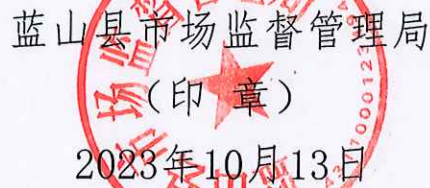 蓝山县市场监督管理局
（印 章）
2023年10月13日